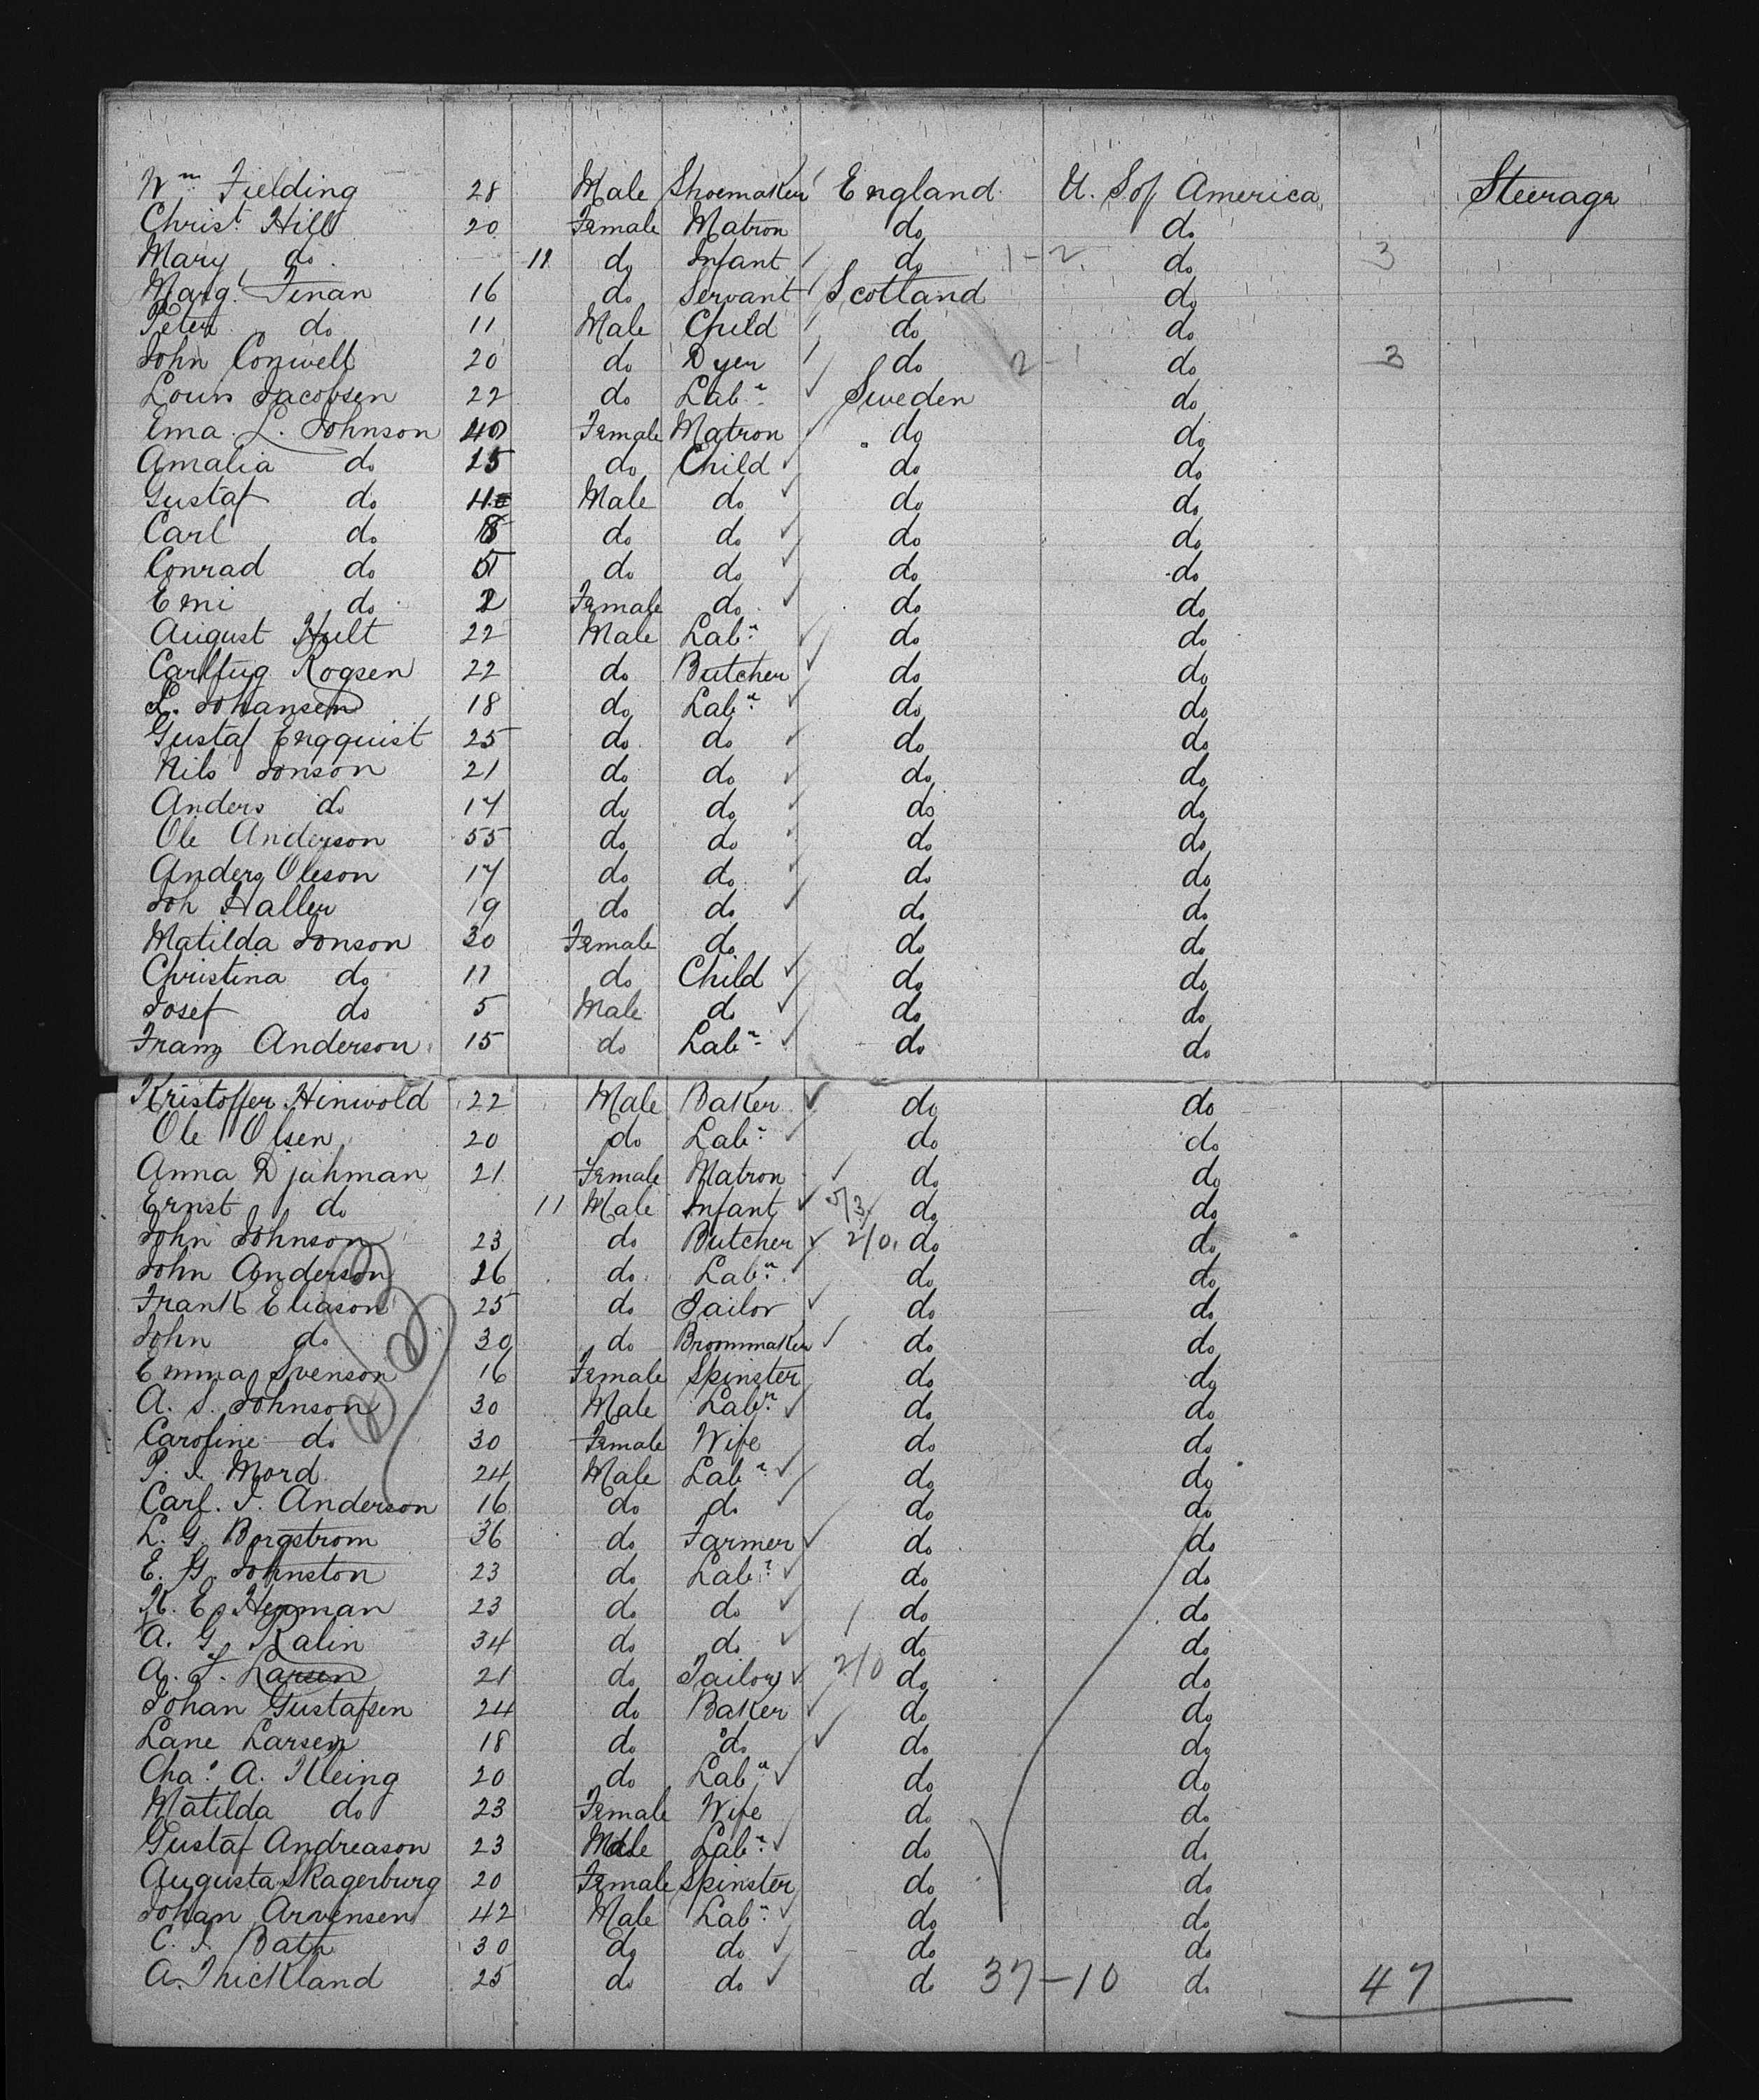 Wm Fielding 28 Male Shoemaker England U. S of America Steerage
Christ. Hill 20 Female Matron do do
Mary do 11 do Infant do 1-2 do 3
Margt. Finan 16 do Servant Scotland do
Peter do 11 Male Child do do
John Conwell 20 do Dyer do 2-1 do 3
Louis Jacobsen 22 do Labr. Sweden do
Ema. L. Johnson 40 Female Matron do do
Amalia do 15 do Child do do
Gustaf do 11 Male do do do
Carl do 8 do do do do
Conrad do 5 do do do do
Emi do 2 Female do do do
August Hult 22 Male Labr. do do
Rogsen 22 do Butcher do do
L. Johansen 18 do Labr. do do
Gustaf Engquist 25 do do do do
Nils Jonson 21 do do do do
Anders do 17 do do do do
Ole Anderson 55 do do do do
Anders Oleson 17 do do do do
Joh Haller 19 do do do do
Matilda Jonson 30 Female do do do
Christina do 11 do Child do do
Josef do 5 Male do do do
Franz Anderson 15 do Labr. do do
Kristoffer Hinwold 22 Male Baker do do
Ole Olsen 20 do Labr. do do
Anna Djuhman 21 Female Matron do do
Ernst do 11 Male Infant 5/3 do do
John Johnson 23 do Butcher 2/0 do do
John Anderson 26 do Labr. do do
Frank Eliason 25 do Tailor do do
John do 30 do Broommaker do do
Emma Svenson 16 Female Spinster do do
A. S. Johnson 30 Male Labr. do do
Caroline do 30 Female Wife do do
P. I. Mord 24 Male Labr. do do
Carl. I. Anderson 16 do do do do
L. G. Borgstrom 36 do Farmer do do
E. G. Johnston 23 do Labr. do do
K. E. Herman 23 do do do do
A. G. Ralin 34 do do do do
A. F. Larsen 21 do Tailor 2/0 do do
Johan Gustafsen 24 do Baker do do
Lane Larsen 18 do do do do
Chas. A. Kleing 20 do Labr. do do
Matilda do 23 Female Wife do do
Gustaf Andreason 23 Male Labr. do do
Augusta Skagerburg 20 Female Spinster do do
Johan Arvensen 42 Male Labr. do do
C. I. Bath 30 do do do do
A. Trickland 25 do do do 37-10 do 47